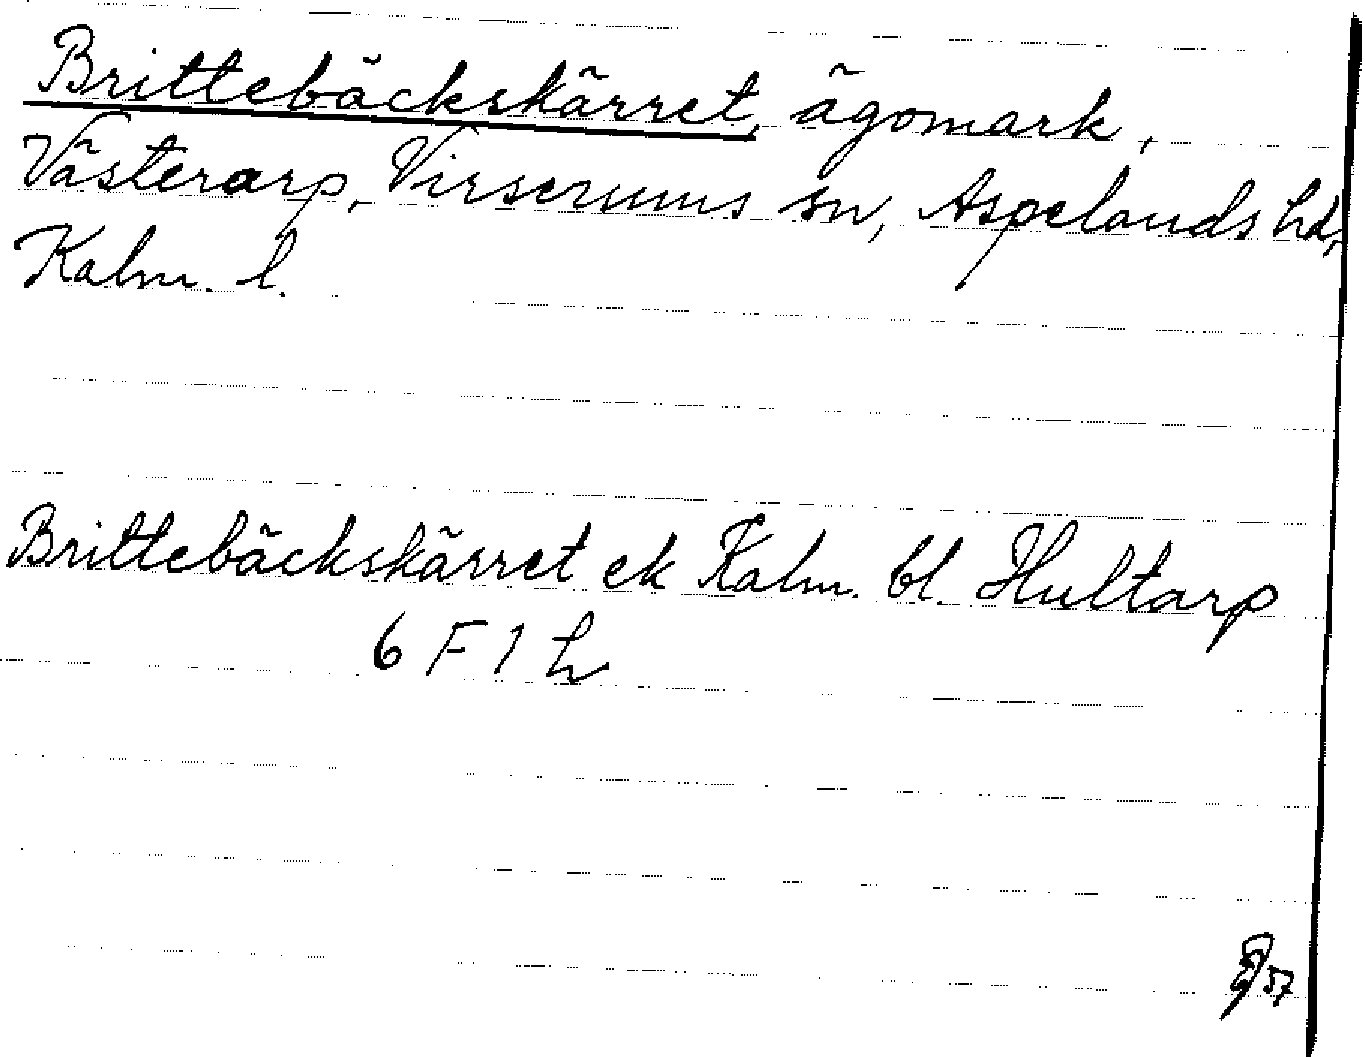 Brittebäckskärret, ägomark,
Västerarp, Virserums sn, Aspelands hd,
Kalm. l.
Brittebäckskärret ek Kalm. bl. Hultarp
6 F 1 h
57